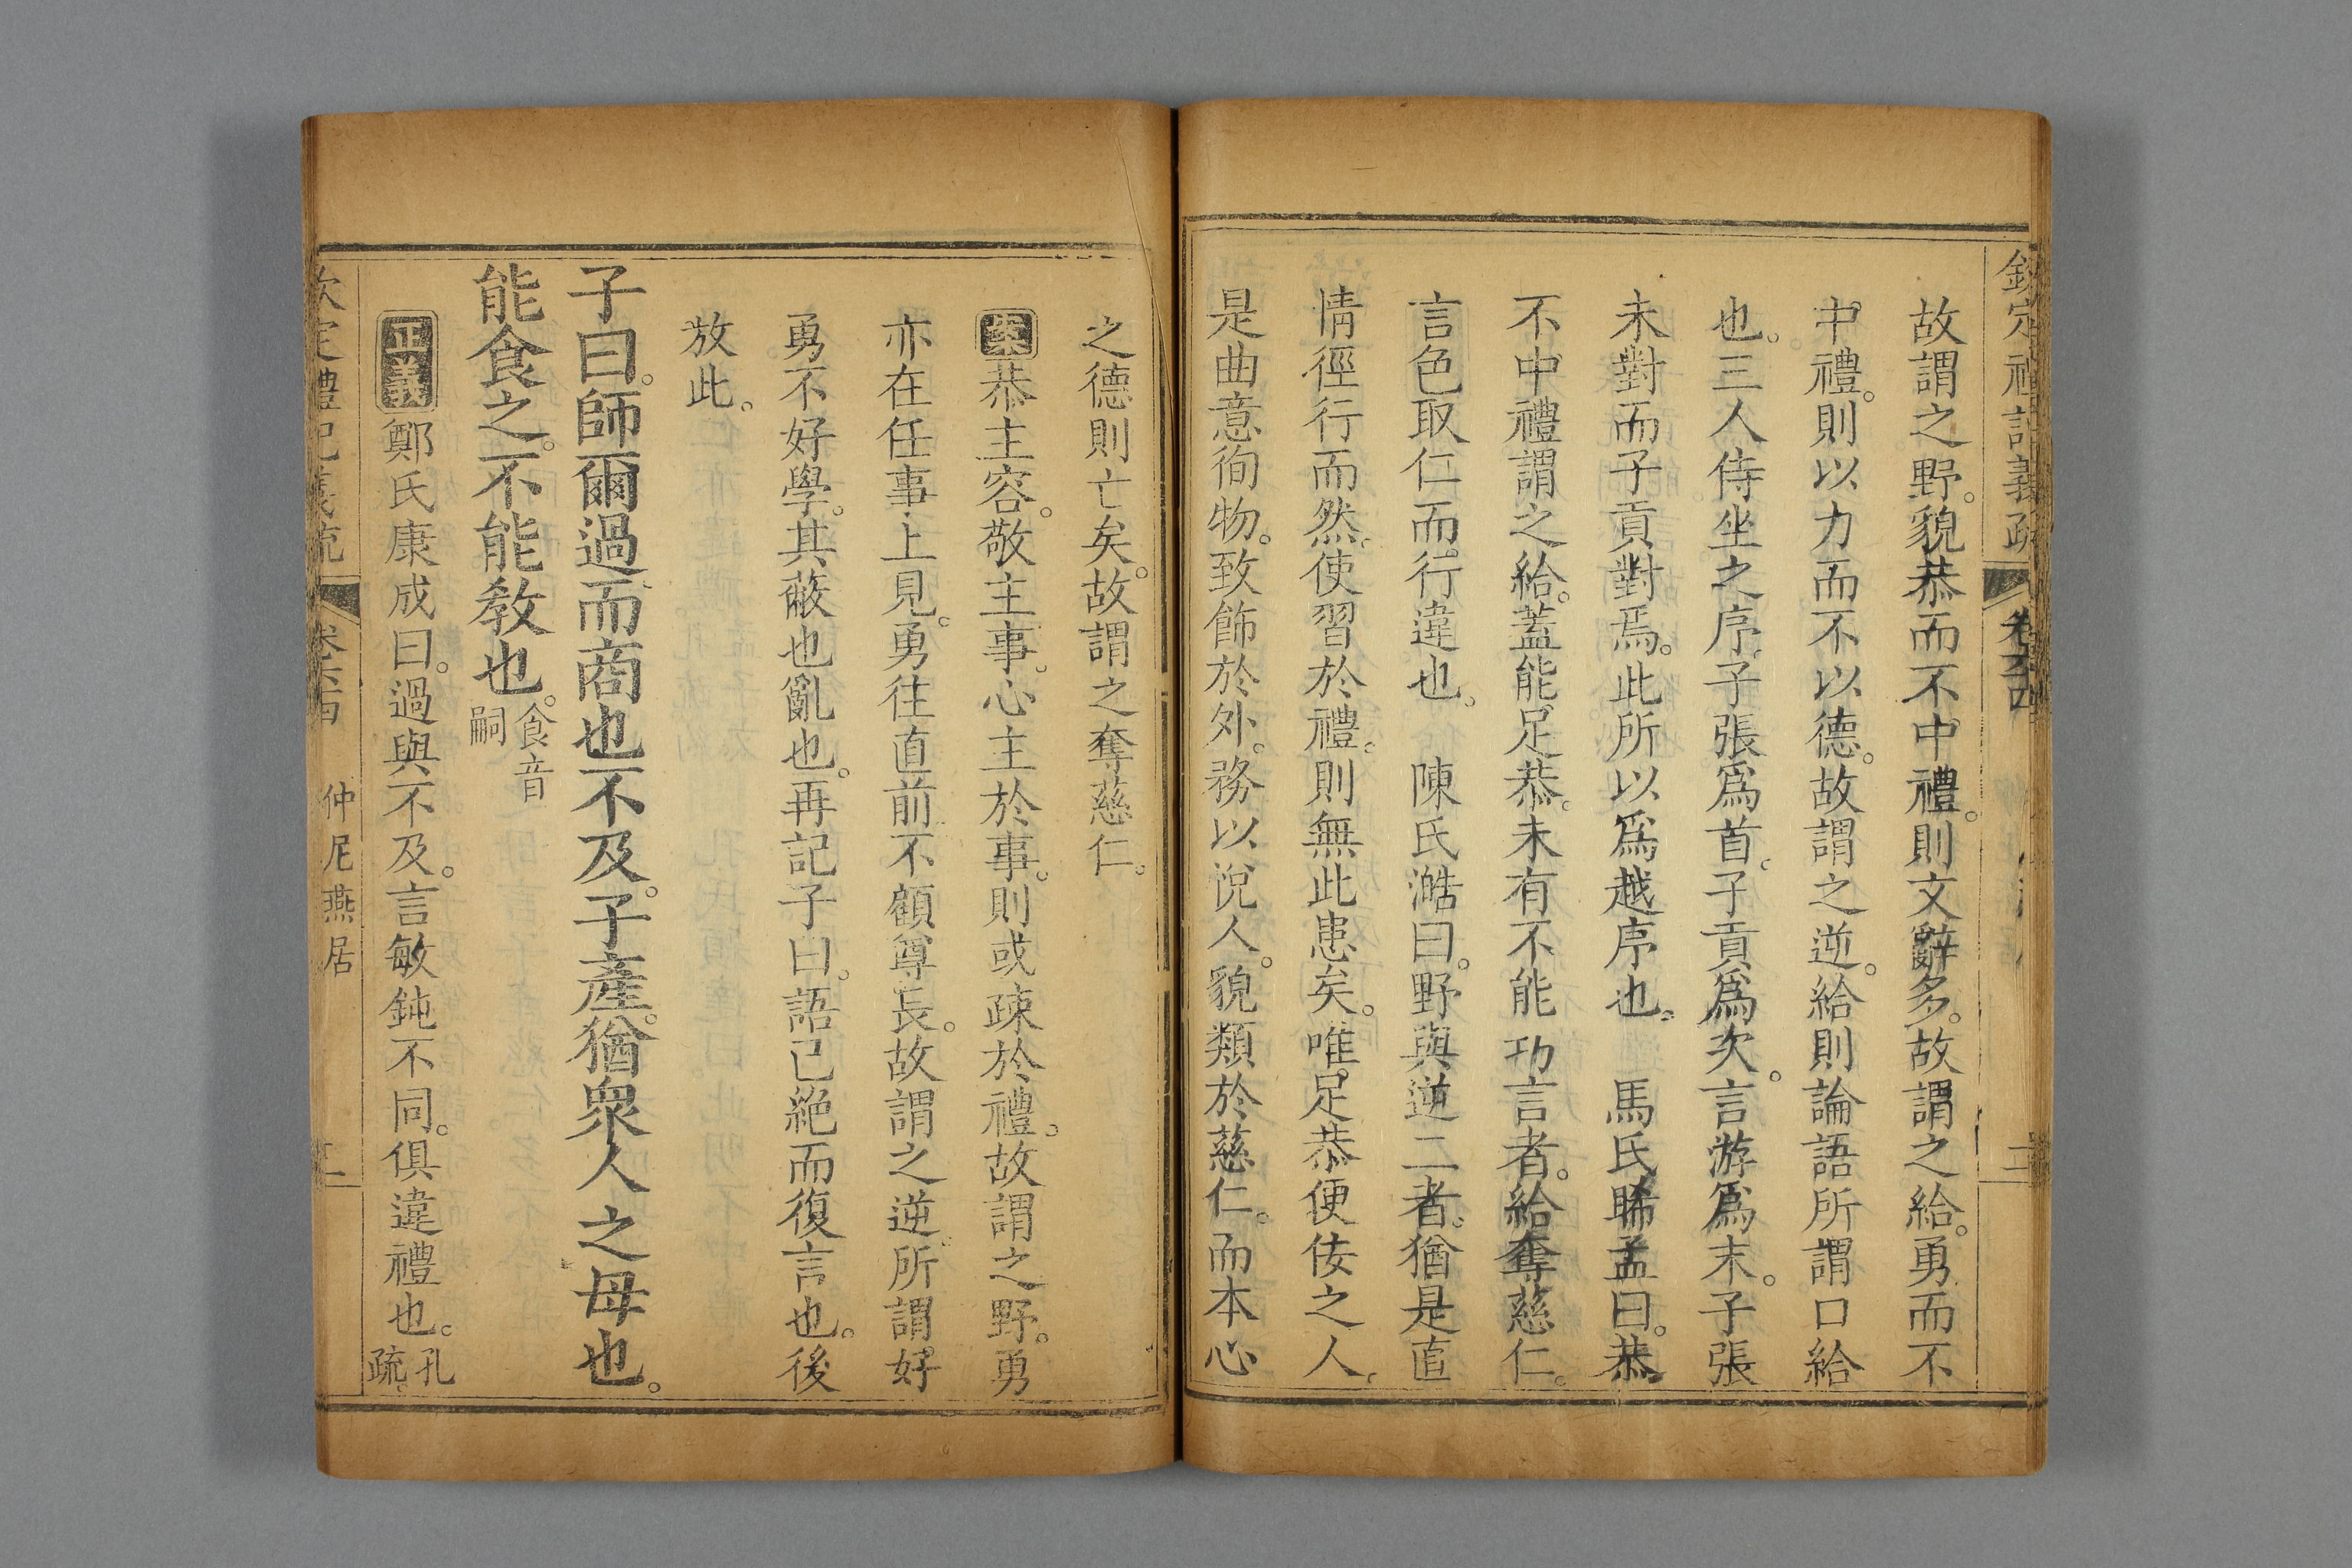 欽定禮記義疏 卷六十四 二
故謂之野。貌恭而不中禮。則文辭多。故謂之給。勇而不
中禮。則以力而不以德。故謂之逆。給則論語所謂口給
也。三人侍坐之序。子張爲首。子貢爲次。言游爲末。子張
未對而子貢對焉。此所以爲越序也。 馬氏睎孟曰。恭
不中禮謂之給。蓋能足恭。未有不能巧言者。給奪慈仁。
言色取仁而行違也。 陳氏澔曰。野與逆二者。猶是直
情徑行而然。使習於禮。則無此患矣。唯足恭便佞之人。
是曲意徇物。致飾於外。務以說人。貌類於慈仁。而本心
之德則亡矣。故謂之奪慈仁。
案恭主容。敬主事。心主於事。則或疎於禮。故謂之野。勇
亦在任事上見。勇往直前不顧尊長。故謂之逆。所謂好
勇不好學。其蔽也亂也。再記子曰。語已絕而復言也。後
放此。
子曰。師爾過而商也不及。子產猶衆人之母也。
能食之。不能教也。食音嗣
正義鄭氏康成曰。過與不及。言敏鈍不同。俱違禮也。孔疏。
欽定禮記義疏 卷六十四 仲尼燕居